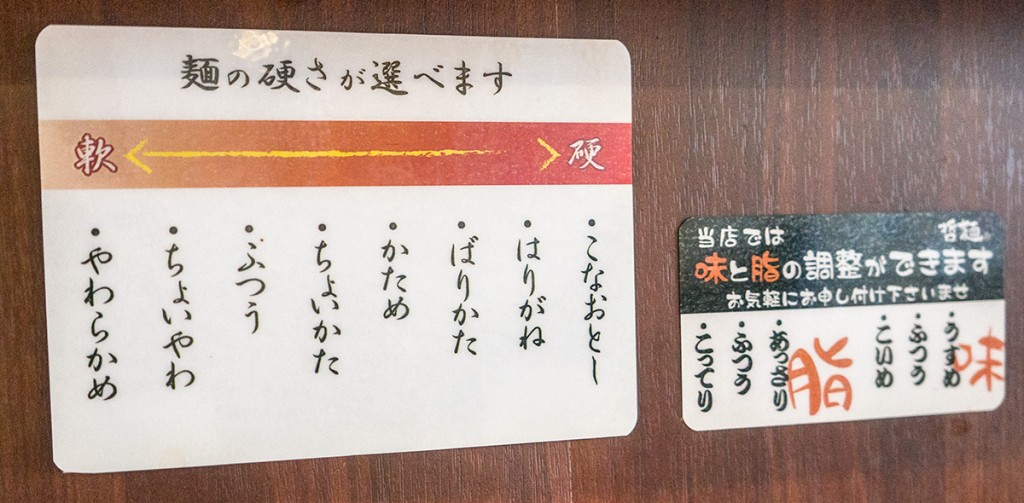 麺の硬さが選べます
軟 硬
・こなおとし
・はりがね
・ばりかた
・かため
・ちょいかた
・ふつう
・ちょいやわ
・やわらかめ
当店では
哲麺
味と脂の調整ができます
お気軽にお申し付け下さいませ
味
・うすめ
・ふつう
・こいめ
脂
・あっさり
・ふつう
・こってり